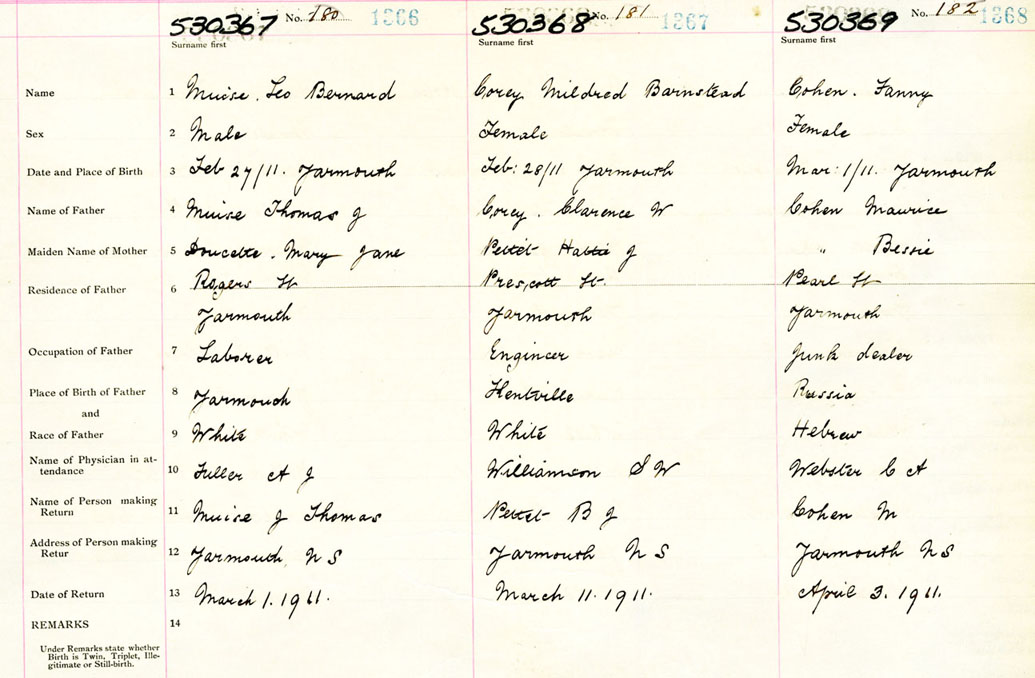 530367 No. 180 1366 530368 No. 181 1367 530369 No. 182 1368
Surname first Surname first Surname first
Name 1 Muise. Leo Bernard Corey Mildred Barnstead Cohen. Fanny
Sex 2 Male Female Female
Date and Place of Birth 3 Feb 27/11. Yarmouth Feb: 28/11 Yarmouth Mar: 1/11. Yarmouth
Name of Father 4 Muise Thomas J Corey. Clarence W Cohen Maurice
Maiden Name of Mother 5 Doucette. Mary Jane Pettet Hattie J " Bessie
Residence of Father 6 Rogers St Prescott St. Pearl St
Yarmouth Yarmouth Yarmouth
Occupation of Father 7 Laborer Engineer Junk dealer
Place of Birth of Father 8 Yarmouth Kentville Russia
and
Race of Father 9 White White Hebrew
Name of Physician in at-
tendance 10 Fuller A J Williamson S W Webster C A
Name of Person making
Return 11 Muise J Thomas Pettet B J Cohen M
Address of Person making
Retur 12 Yarmouth N S Yarmouth N S Yarmouth N S
Date of Return 13 March 1. 1911. March 11. 1911. April 3. 1911.
REMARKS 14
Under Remarks state whether
Birth is Twin, Triplet, Ille-
gitimate or Still-birth.